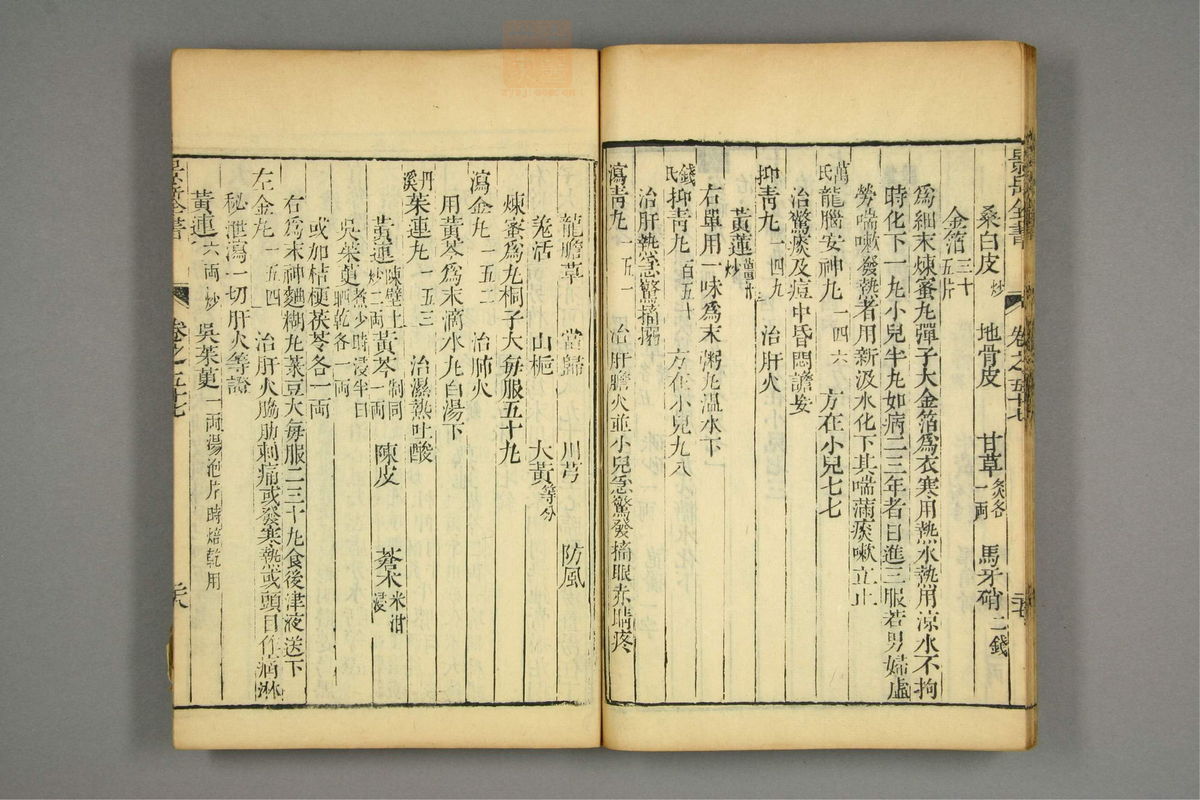 景岳全書 卷之五十七
桑白皮炒 地骨皮 甘草炙各一両 馬牙硝二錢
金箔三十五片
爲細末煉蜜丸彈子大金箔爲衣寒用熱水熱用涼水不拘
時化下一丸小兒半丸如病二三年者日進三服若男婦虛
勞喘嗽發熱者用新汲水化下其喘滿痰嗽立止
萬氏龍腦安神丸一四六 方在小兒七七
治驚痰及痘中昏悶譫妄
抑靑丸一四九 治肝火
黃蓮炒
右單用一味爲末粥丸溫水下
錢氏抑靑丸百五十 方在小兒九八
治肝熱急驚搐搦
瀉靑丸一五一 治肝膽火並小兒急驚發搐眼赤睛疼
龍膽草 當歸 川芎 防風
羗活 山梔 大黃等分
煉蜜爲丸桐子大每服五十丸
瀉金丸一五二 治肺火
用黃芩爲末滴水丸白湯下
丹溪茱連丸一五三 治濕熱吐酸
黃蓮陳壁土炒二両 黃芩制同一両 陳皮 蒼朮米泔浸
吳茱萸煮少時浸半日晒乾各一両
或加桔梗茯苓各一両
右爲末神麯糊丸菉豆大每服二三十丸食後津液送下
左金丸一五四 治肝火脇肋刺痛或發寒熱或頭目作痛淋
秘泄瀉一切肝火等證
黃連六両炒 吳茱萸一両湯泡片時焙乾用
景岳全書 卷之五十七